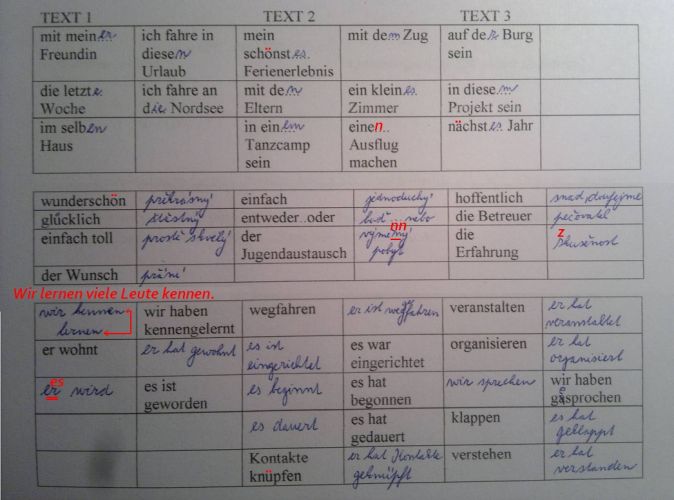 TEXT 1 TEXT 2 TEXT 3
mit meiner ich fahre in mein mit dem Zug auf der Burg
Freundin diesem schönstes sein
Urlaub Ferienerlebnis
die letzte ich fahre an mit den ein kleines in diesem
Woche die Nordsee Eltern Zimmer Projekt sein
im selben in einem einen.. nächstes Jahr
Haus Tanzcamp Ausflug
sein machen
wunderschön překrásný einfach jednoduchý hoffentlich snad, doufejme
glücklich šťastný entweder..oder buď...nebo die Betreuer pečovatel
nn
einfach toll prostě skvělý der výměnný die z
Jugendaustausch pobyt Erfahrung zkušenost
der Wunsch přání
Wir lernen viele Leute kennen.
wir kennen wir haben wegfahren er ist weggefahren veranstalten er hat
lernen kennengelernt veranstaltet
er wohnt er hat gewohnt es ist es war organisieren er hat
eingerichtet eingerichtet organisiert
es
er wird es ist es beginnt es hat wir sprechen wir haben
geworden begonnen gesprochen
es dauert es hat klappen es hat
gedauert geklappt
Kontakte er hat Kontakte verstehen er hat
knüpfen geknüpft verstanden